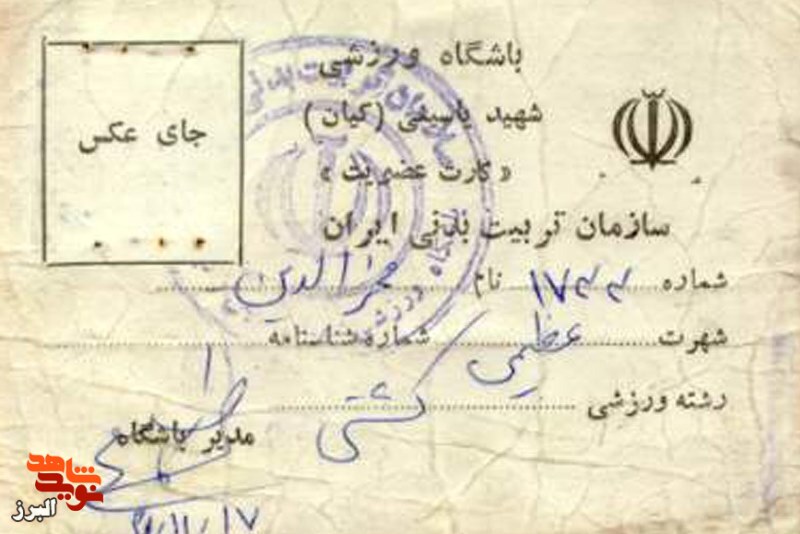 باشگاه ورزشی
شهید یاسینی (کیان)
« کارت عضویت »
سازمان تربیت بدنی ایران
جای عکس
شماره ۱۷۴۴ نام فخرالدین
شهرت عظیمی شماره شناسنامه
رشته ورزشی کشتی
مدیر باشگاه
سازمان تربیت بدنی
نوید شاهد
البرز